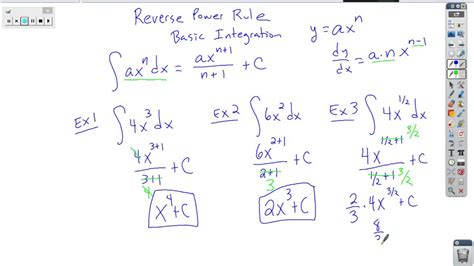 Reverse Power Rule
Basic Integration
y = axⁿ
∫ axⁿ dx = axⁿ⁺¹ / n+1 + C
dy/dx = a·n xⁿ⁻¹
Ex 1 ∫ 4x³ dx
4x³⁺¹ / 3+1 + C
4
x⁴ + C
Ex 2 ∫ 6x² dx
6x²⁺¹ / 2+1 + C
3
2x³ + C
Ex 3 ∫ 4x^(1/2) dx
4x^(1/2+1) / 1/2+1 + C
3/2
3/2
2/3 · 4x^(3/2) + C
8